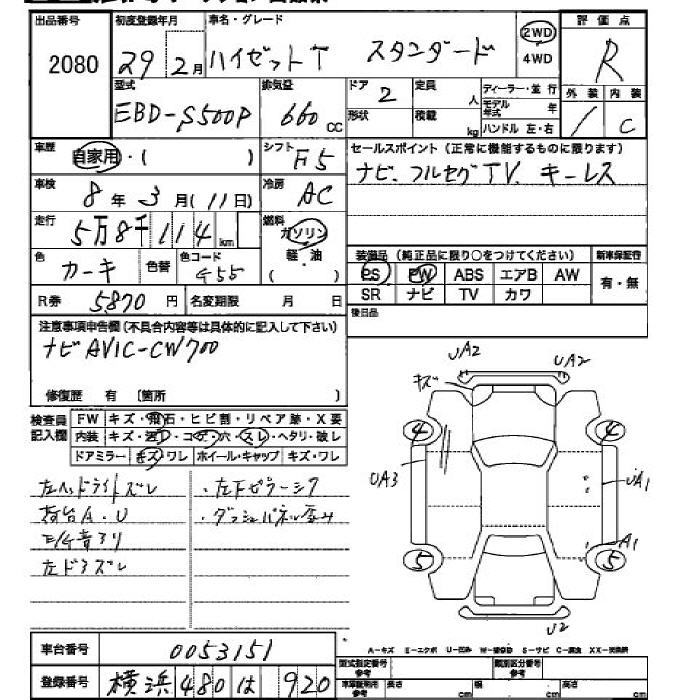 出品番号 初度登録年月 車名・グレード 評価点
2080 29 2月 ハイゼットT スタンダード 2WD 4WD R
型式 排気量 ドア 定員 ディーラー・並行 外装 内装
EBD-S500P 660cc 2 人 モデル年式 年
形状 積載 kg ハンドル 左・右 / C
車歴 自家用・( ) シフト F5 セールスポイント (正常に機能するものに限ります)
ナビ、フルセグTV、キーレス
車検 8年3月(11日) 冷房 AC
走行 5万8千114km 燃料 ガソリン
軽・油
( )
色 カーキ 色替 色コード G55
装備品 (純正品に限り○をつけてください) 新車保証書
PS PW ABS エアB AW 有・無
SR ナビ TV カワ
R券 5870円 名変期限 月 日
後日品
注意事項申告欄(不具合内容等は具体的に記入して下さい)
ナビ AVIC-CW700
修復歴 有 [箇所 ]
検査員 FW キズ・飛石・ヒビ割・リペア跡・X要
記入欄 内装 キズ・・コゲ・穴・スレ・ヘタリ・破レ
ドアミラー キズ・ワレ ホイール・キャップ キズ・ワレ
左ヘッドライトズレ
荷台A・U
E/G音アリ
左ドアズレ
・左下ピラーシワ
・ダッシュパネル歪み
UA2 UA2
キズ
4 4
UA3 UA1
A1
5 5
U2
A-キズ E-エクボ U-凹み W-補修跡 S-サビ C-腐食 XX-交換済
車台番号 0053151
登録番号 横浜 480 は 920
型式指定番号 参考 類別区分番号 参考
車庫証明用 参考 長さ cm 幅 cm 高さ cm